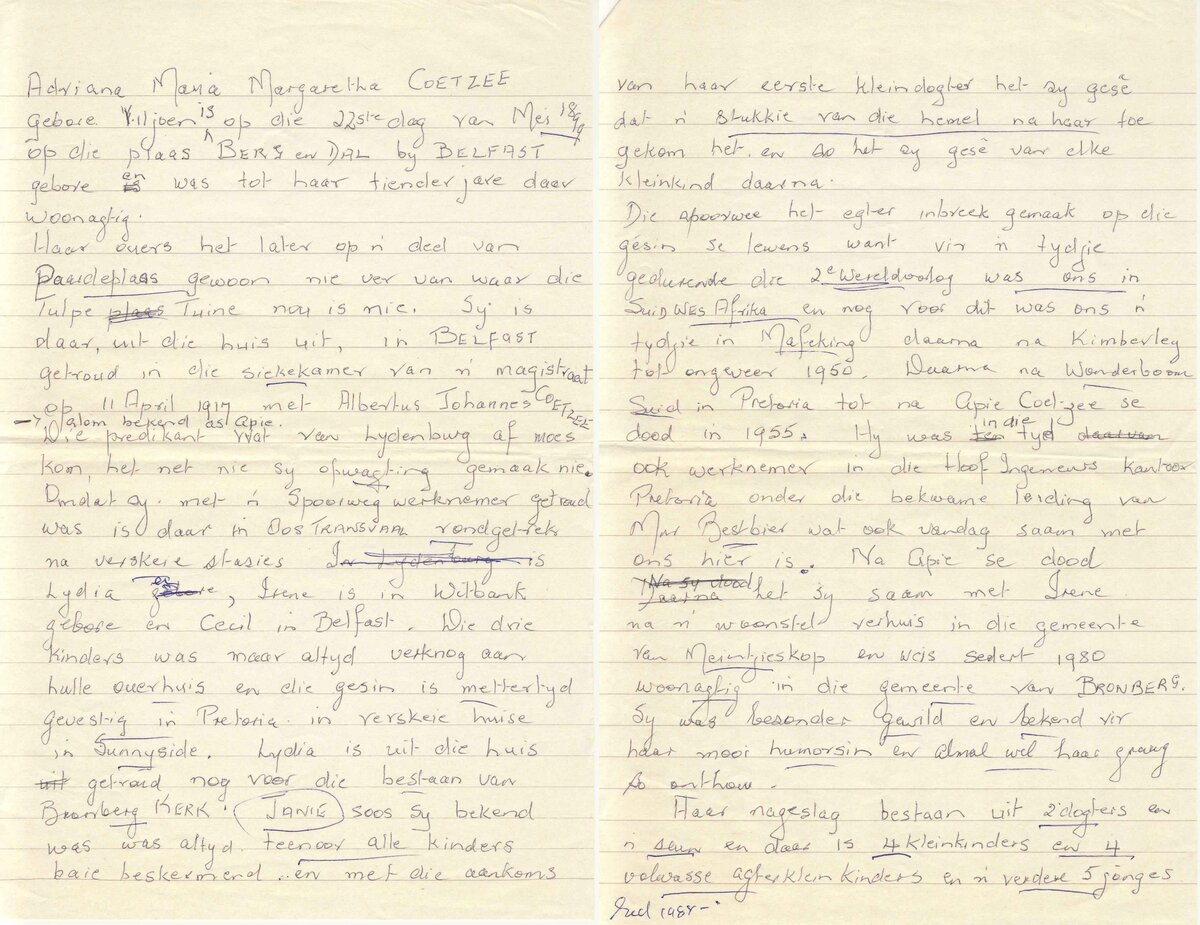 Adriana Maria Margaretha COETZEE
gebore Viljoen is op die 22ste dag van Mei 1899
op die plaas BERG en DAL by BELFAST
gebore is en was tot haar tiender jare daar
woonagtig.
Haar ouers het later op 'n deel van
Paardeplaas gewoon nie ver van waar die
Tulpe plaas Tuine nou is nie. Sy is
daar, uit die huis uit, in BELFAST
getroud in die siekekamer van 'n magistraat
op 11 April 1917 met Albertus Johannes COETZEE
→ alom bekend as Apie.
Die predikant wat van Lydenburg af moes
kom, het net nie sy opwagting gemaak nie.
Omdat sy met 'n Spoorweg werknemer getroud
was is daar in OOS TRANSVAAL rondgetrek
na verskeie stasies In Lydenburg is
Lydia gebore en, Irene is in Witbank
gebore en Cecil in Belfast. Die drie
kinders was maar altyd verknog aan
hulle ouerhuis en die gesin is mettertyd
gevestig in Pretoria in verskeie huise
in Sunnyside. Lydia is uit die huis
uit getroud nog voor die bestaan van
Bronberg KERK. JANIE soos sy bekend
was was altyd teenoor alle kinders
baie beskermend .. en met die aankoms
van haar eerste kleindogter het sy gesê
dat 'n stukkie van die hemel na haar toe
gekom het. en so het sy gesê van elke
kleinkind daarna.
Die spoorweë het egter inbreek gemaak op die
gesin se lewens want vir 'n tydjie
gedurende die 2e Wereldoorlog was ons in
SUID WES Afrika en nog voor dit was ons 'n
tydjie in Mafeking daarna na Kimberley
tot ongeveer 1950. Daarna na Wonderboom
Suid in Pretoria tot na Apie Coetzee se
dood in 1955. Hy was ten in die tyd daarvan
ook werknemer in die Hoof Ingenieurs kantoor
Pretoria onder die bekwame leiding van
Mnr Bestbier wat ook vandag saam met
ons hier is. Na Apie se dood
Na sy dood
Daarna het sy saam met Irene
na 'n woonstel verhuis in die gemeente
van Meintjieskop en was sedert 1980
woonagtig in die gemeente van BRONBERG.
Sy was besonder gewild en bekend vir
haar mooi humorsin en almal wil haar graag
so onthou.
Haar nageslag bestaan uit 2 dogters en
'n seun en daar is 4 kleinkinders en 4
volwasse agterklein kinders en 'n verdere 5 jonges
1988